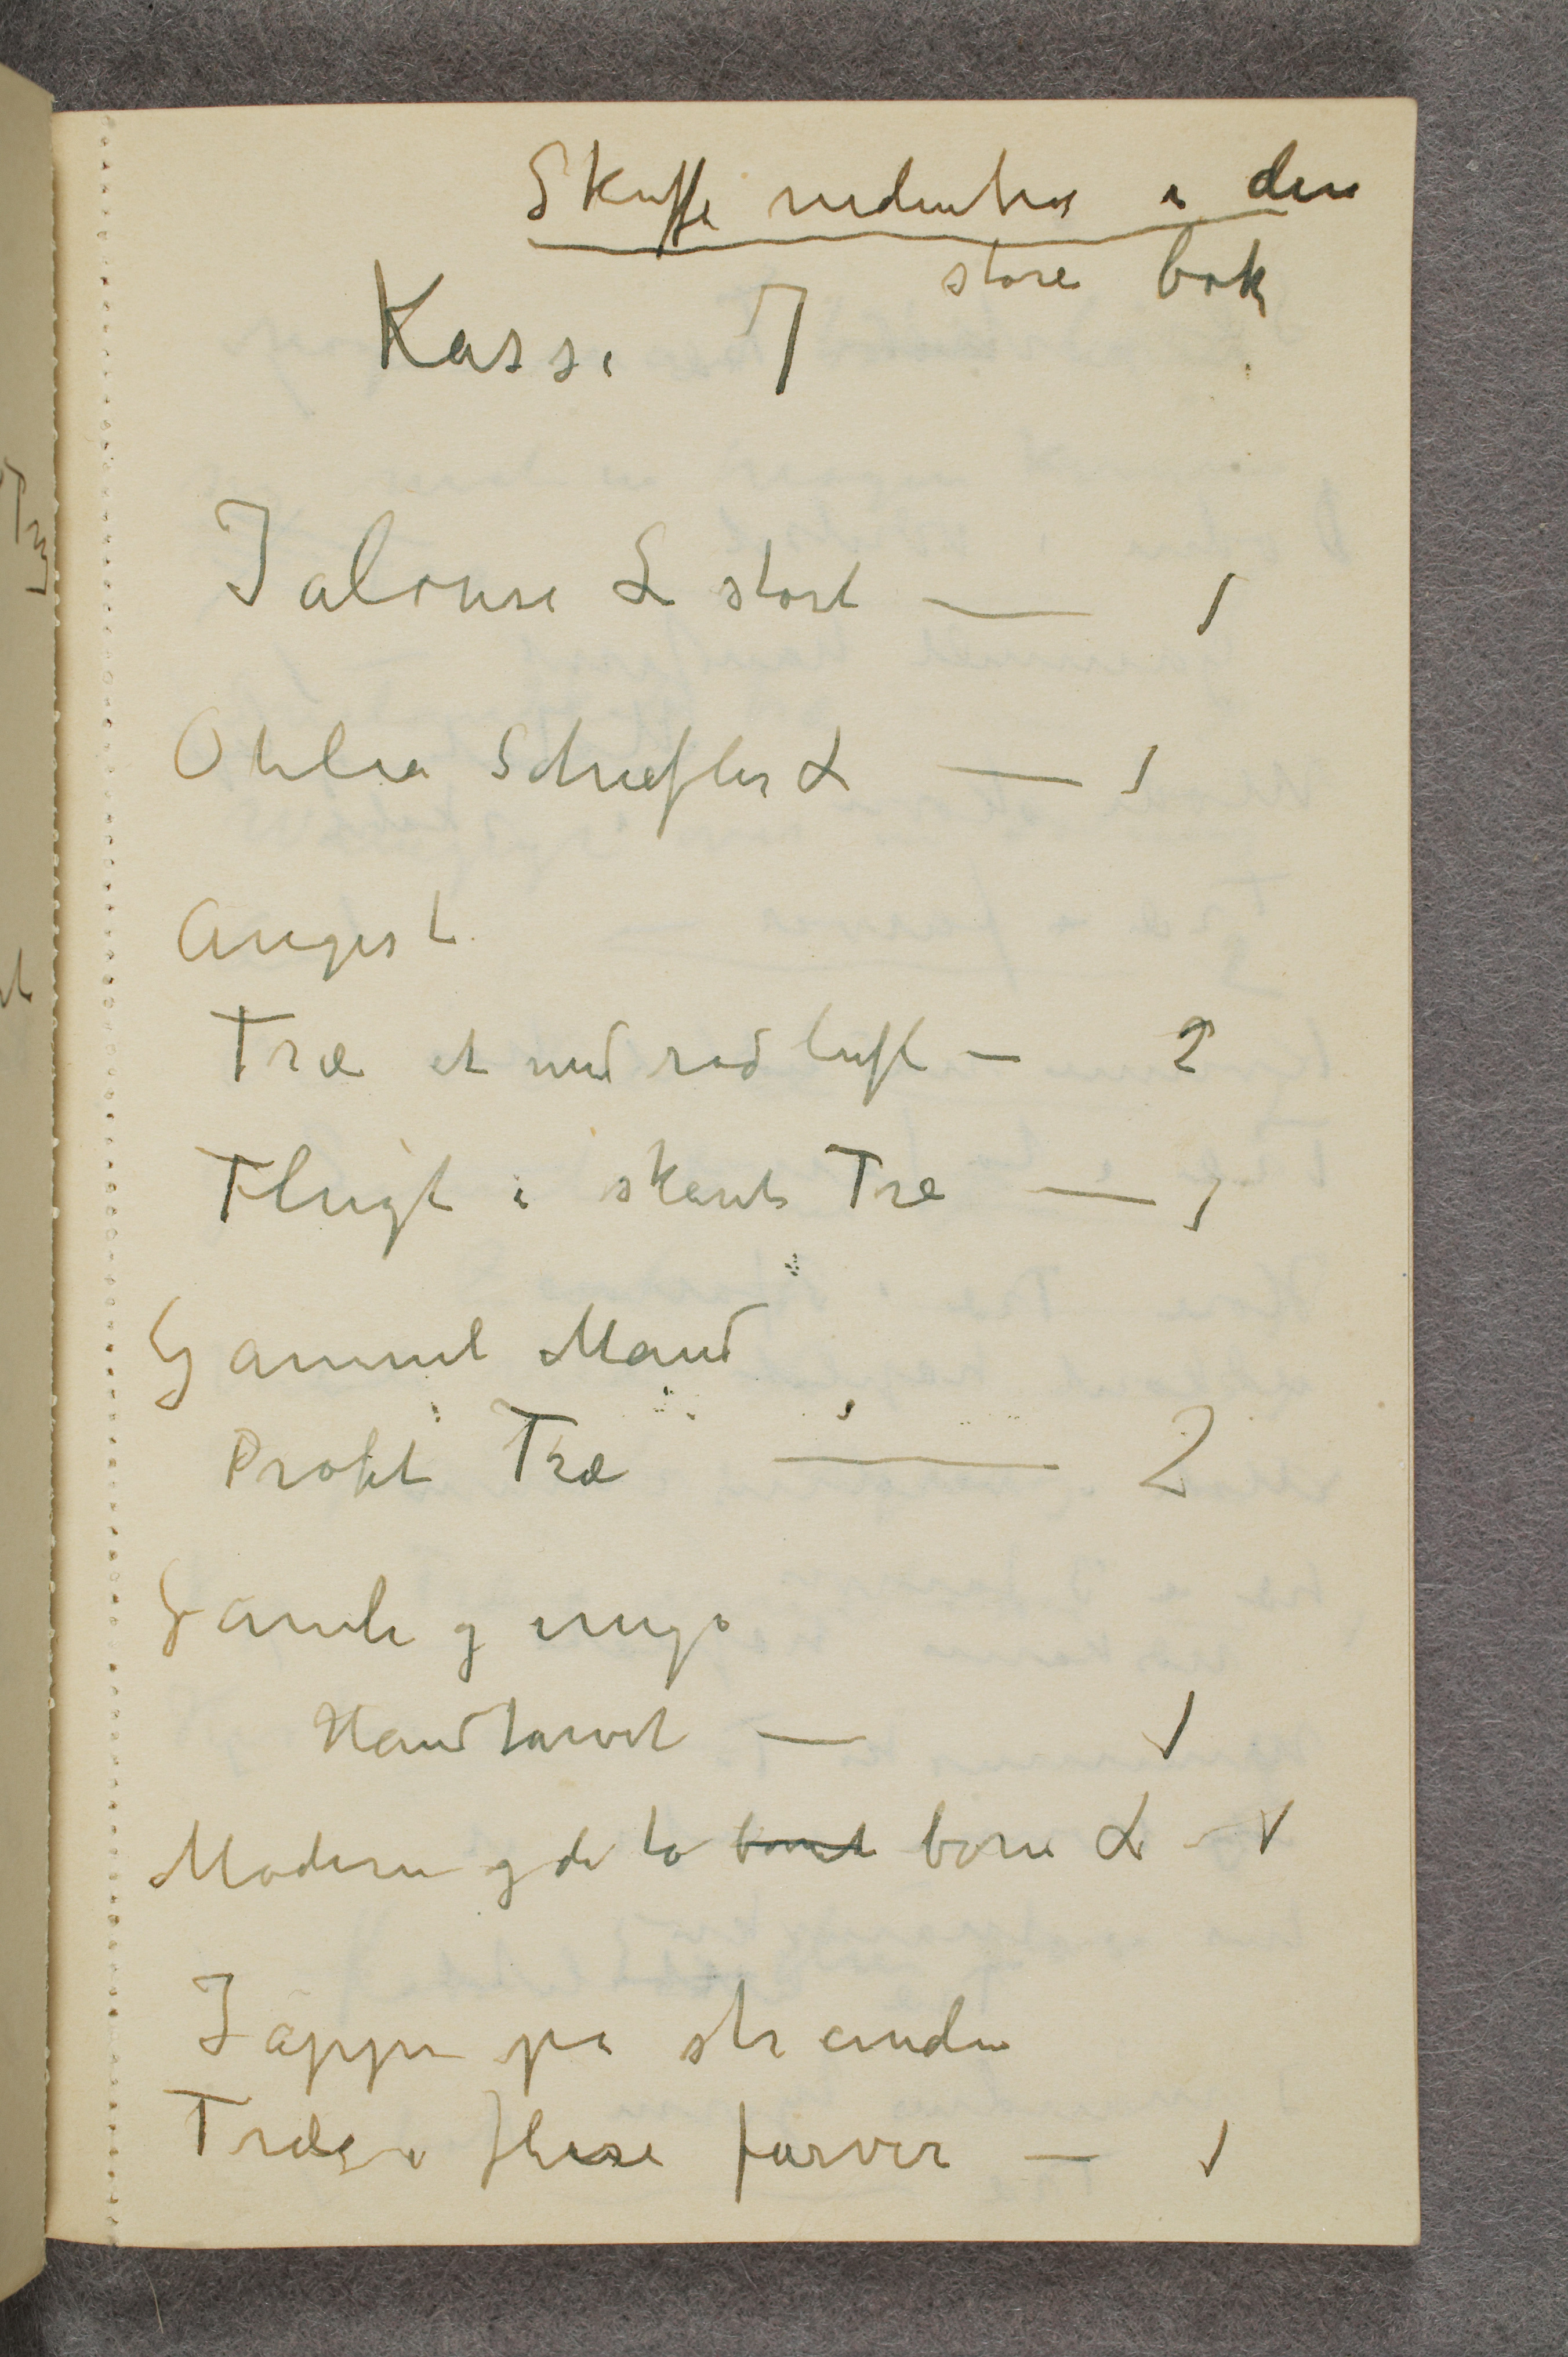 Skuffe nedentra i den
store bok
Kasse 7
Jalousi L stort — 1
Otilia Schiefler L — 1
Angest
Træ et med rød luft — 2
Flugt i skarct Træ — 1
Gammel Mand
Profet Træ — 2
Gamle og unge
Haandfarvet — 1
Moderen og de to barnt børn L — 1
Jappe på stranden
Træ i flere farver — 1